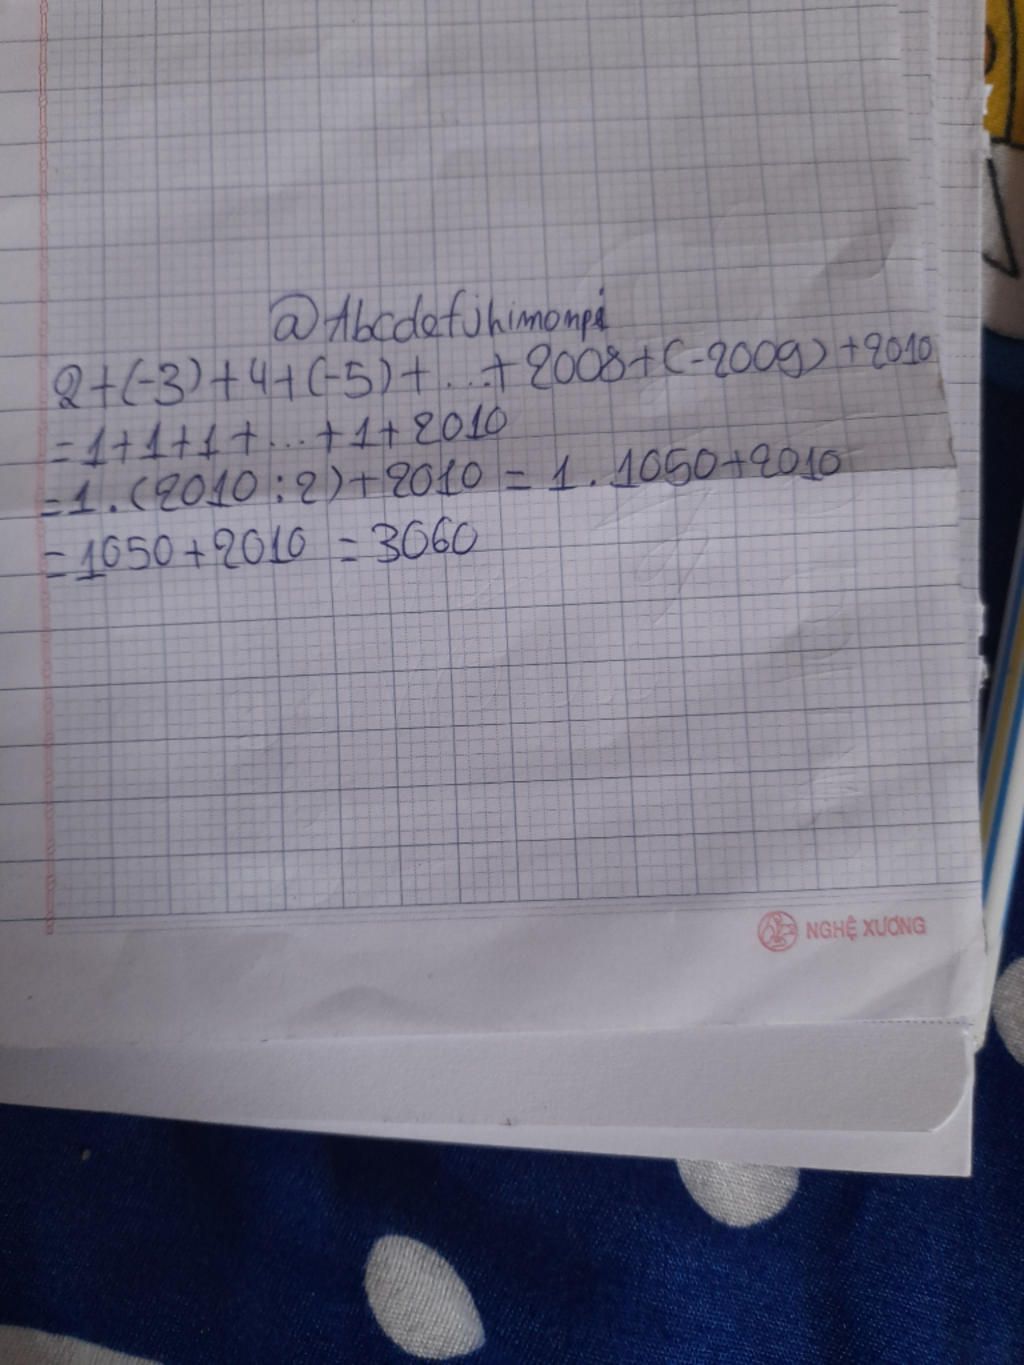 @Abcdefjhimonpi
2+(-3)+4+(-5)+...+2008+(-2009)+2010
=1+1+1+...+1+2010
=1.(2010:2)+2010 = 1.1050+2010
=1050+2010 = 3060
NGHỆ XƯƠNG